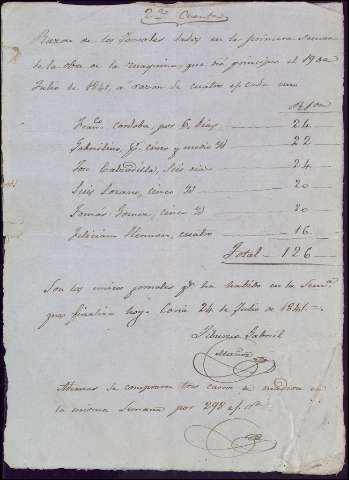 2ª Cuenta
Razon de los Jornales dados en la primera Semana
de la obra de la maquina, que dió principio el 19 de
Julio de 1841, a razon de cuatro r.s cada uno
Franco. Cordoba, por 6 dias 24
Gabrielino, pr. cinco y medio id 22
Jose Calzadilla, Seis dias 24
Luis Lozano, cinco id 20
Tomas Gomez, cinco id 20
Feliciano Herrera, cuatro 16
Total 126
Son los unicos jornales qe. ha habido en la Semna
que finaliza hoy. Coria 24 de Julio de 1841.=
Tiburcio Gabriel
Martin
Ademas se compraron tres carros de madera en
la misma Semana por 298 r.s